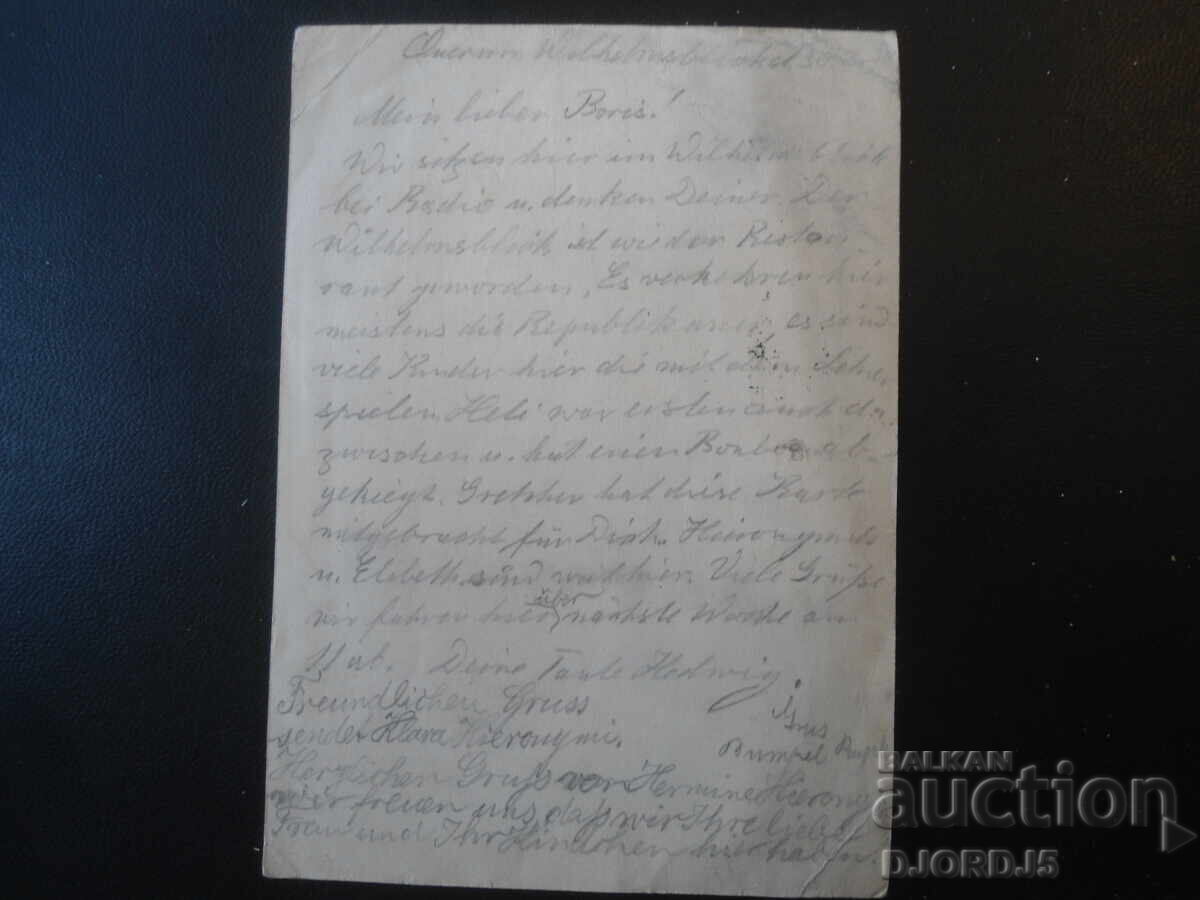 Mein lieber Boris!
Wir sitzen hier im
bei Radio u. denken Deiner. Der
Wilhelmsblick ist wieder Restau
rant geworden, Es verkehren hier
meistens die Republikaner, es sind
viele Kinder hier die mit dem
spielen. Heli war erstens auch da
zwischen u. hat einen Bonbon ab-
gekriegt. Gretchen hat diese Karte
mitgebracht für Dich. Hieronymi
u. Elsbeth sind hier. Viele Grüße
wir fahren hier über nächste Woche am
11 ab. Deine Tante Hedwig.
Freundlichen Gruss
sendet Klara Hieronymi.
Gruss
Bumpel
Herzlichen Gruss von Hermine Hierony
wir freuen uns, daß wir Ihre liebe
Frau und Ihr Hänschen hier haben.
BALKAN
auction
DJORDJ5